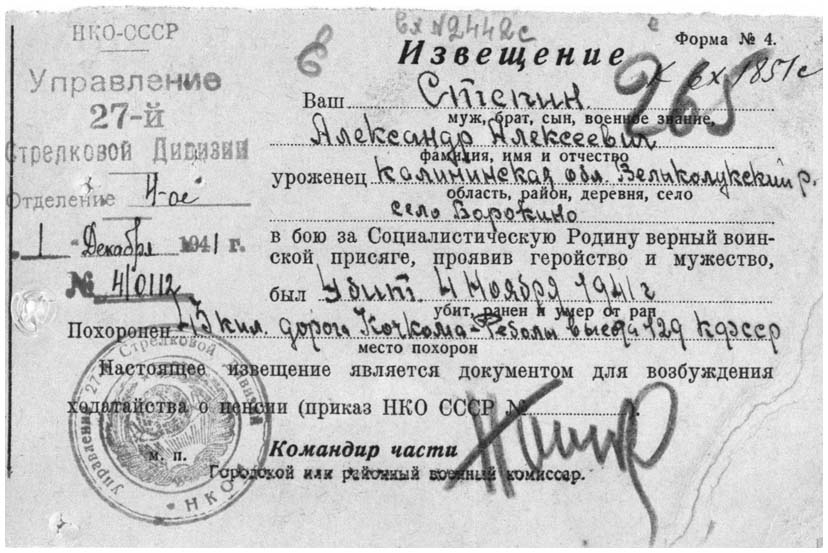 НКО-СССР
Управление
27-й
Стрелковой Дивизии
Отделение 4-ое
1 "Декабря 1941 г.
№ 4/0112
Вх №2442с
Форма № 4.
Извещение
к вх 1851с
265
Ваш Степин
муж, брат, сын, военное звание,
Александр Алексеевич
фамилия, имя и отчество
уроженец Калининская обл. Великолукский р.
область, район, деревня, село
село Ворокино
в бою за Социалистическую Родину верный воин-
ской присяге, проявив геройство и мужество,
был Убит 4 Ноября 1941 г
убит, ранен и умер от ран
Похоронен 43 кил. дорога Кочкома-Реболы высота 129 КФССР
место похорон
Настоящее извещение является документом для возбуждения
ходатайства о пенсии (приказ НКО СССР № ).
Командир части
м. п.
Городской или районный военный комиссар.
Управление 27 Стрелковой дивизии
НКО